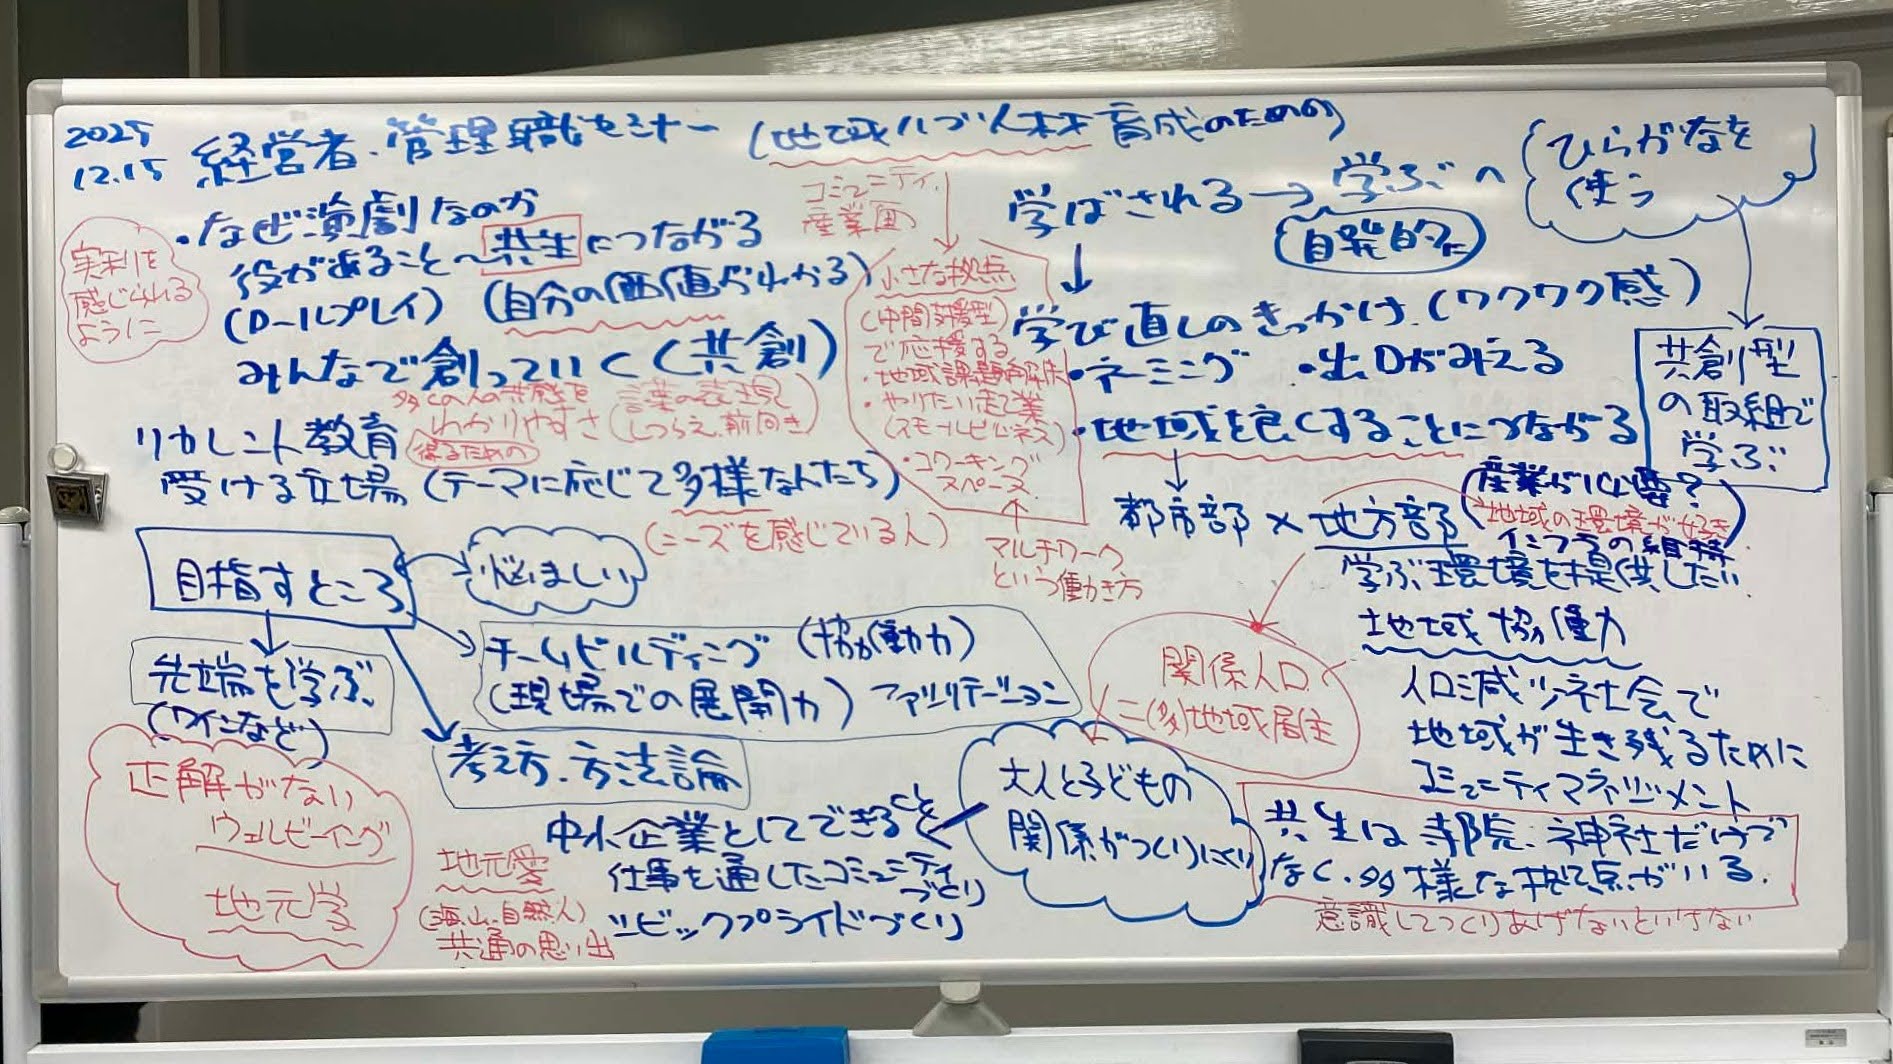 2025
12.15
経営者・管理職セミナー (地域ハブ人材育成のための)
・なぜ演劇なのか
役があること〜共生につながる
(ロールプレイ) (自分の価値がわかる)
みんなで創っていく(共創)
実利を
感じられる
ように
多くの人の共感を
得るための
わかりやすさ (言葉の表現
しつらえ、前向き)
リカレント教育
受ける立場 (テーマに応じて多様な人たち)
(ニーズを感じている人)
コミュニティ、
産業围
小さな拠点
(中間支援型)
で応援する
・地域課題解決
・やりたい起業
(スモールビジネス)
・コワーキング
スペース
マルチワーク
という働き方
学ばされる→学ぶへ
(自発的に)
ひらがなを
使う
共創型
の取組で
学ぶ
学び直しのきっかけ (ワクワク感)
・ネーミング ・出口がみえる
・地域を良くすることにつながる
都市部×地方部
(産業が必要?
地域の環境が好き)
インフラの維持
学ぶ環境を提供したい
地域協働力
人口減少社会で
地域が生き残るために
コミュニティマネジメント
関係人口
二(多)地域居住
目指すところ
悩ましい
チームビルディング (協働力)
(現場での展開力) ファシリテーション
先端を学ぶ
(ワインなど)
考え方・方法論
正解がない
ウェルビーイング
地元学
中小企業としてできること
仕事を通したコミュニティ
づくり
シビックプライドづくり
地元愛
(海、山、自然、人)
共通の思い出
大人と子どもの
関係がつくりにくい
共生は寺院、神社だけで
なく、多様な拠点がいる。
意識してつくりあげないといけない